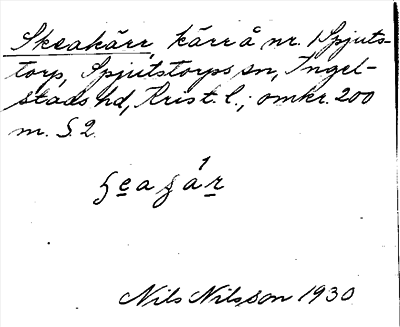 Skeakärr, kärr å nr. 1 Spjuts-
torp, Spjutstorps sn, Ingel-
stads hd, Krist. l.; omkr. 200
m. S 2.

Nils Nilsson 1930